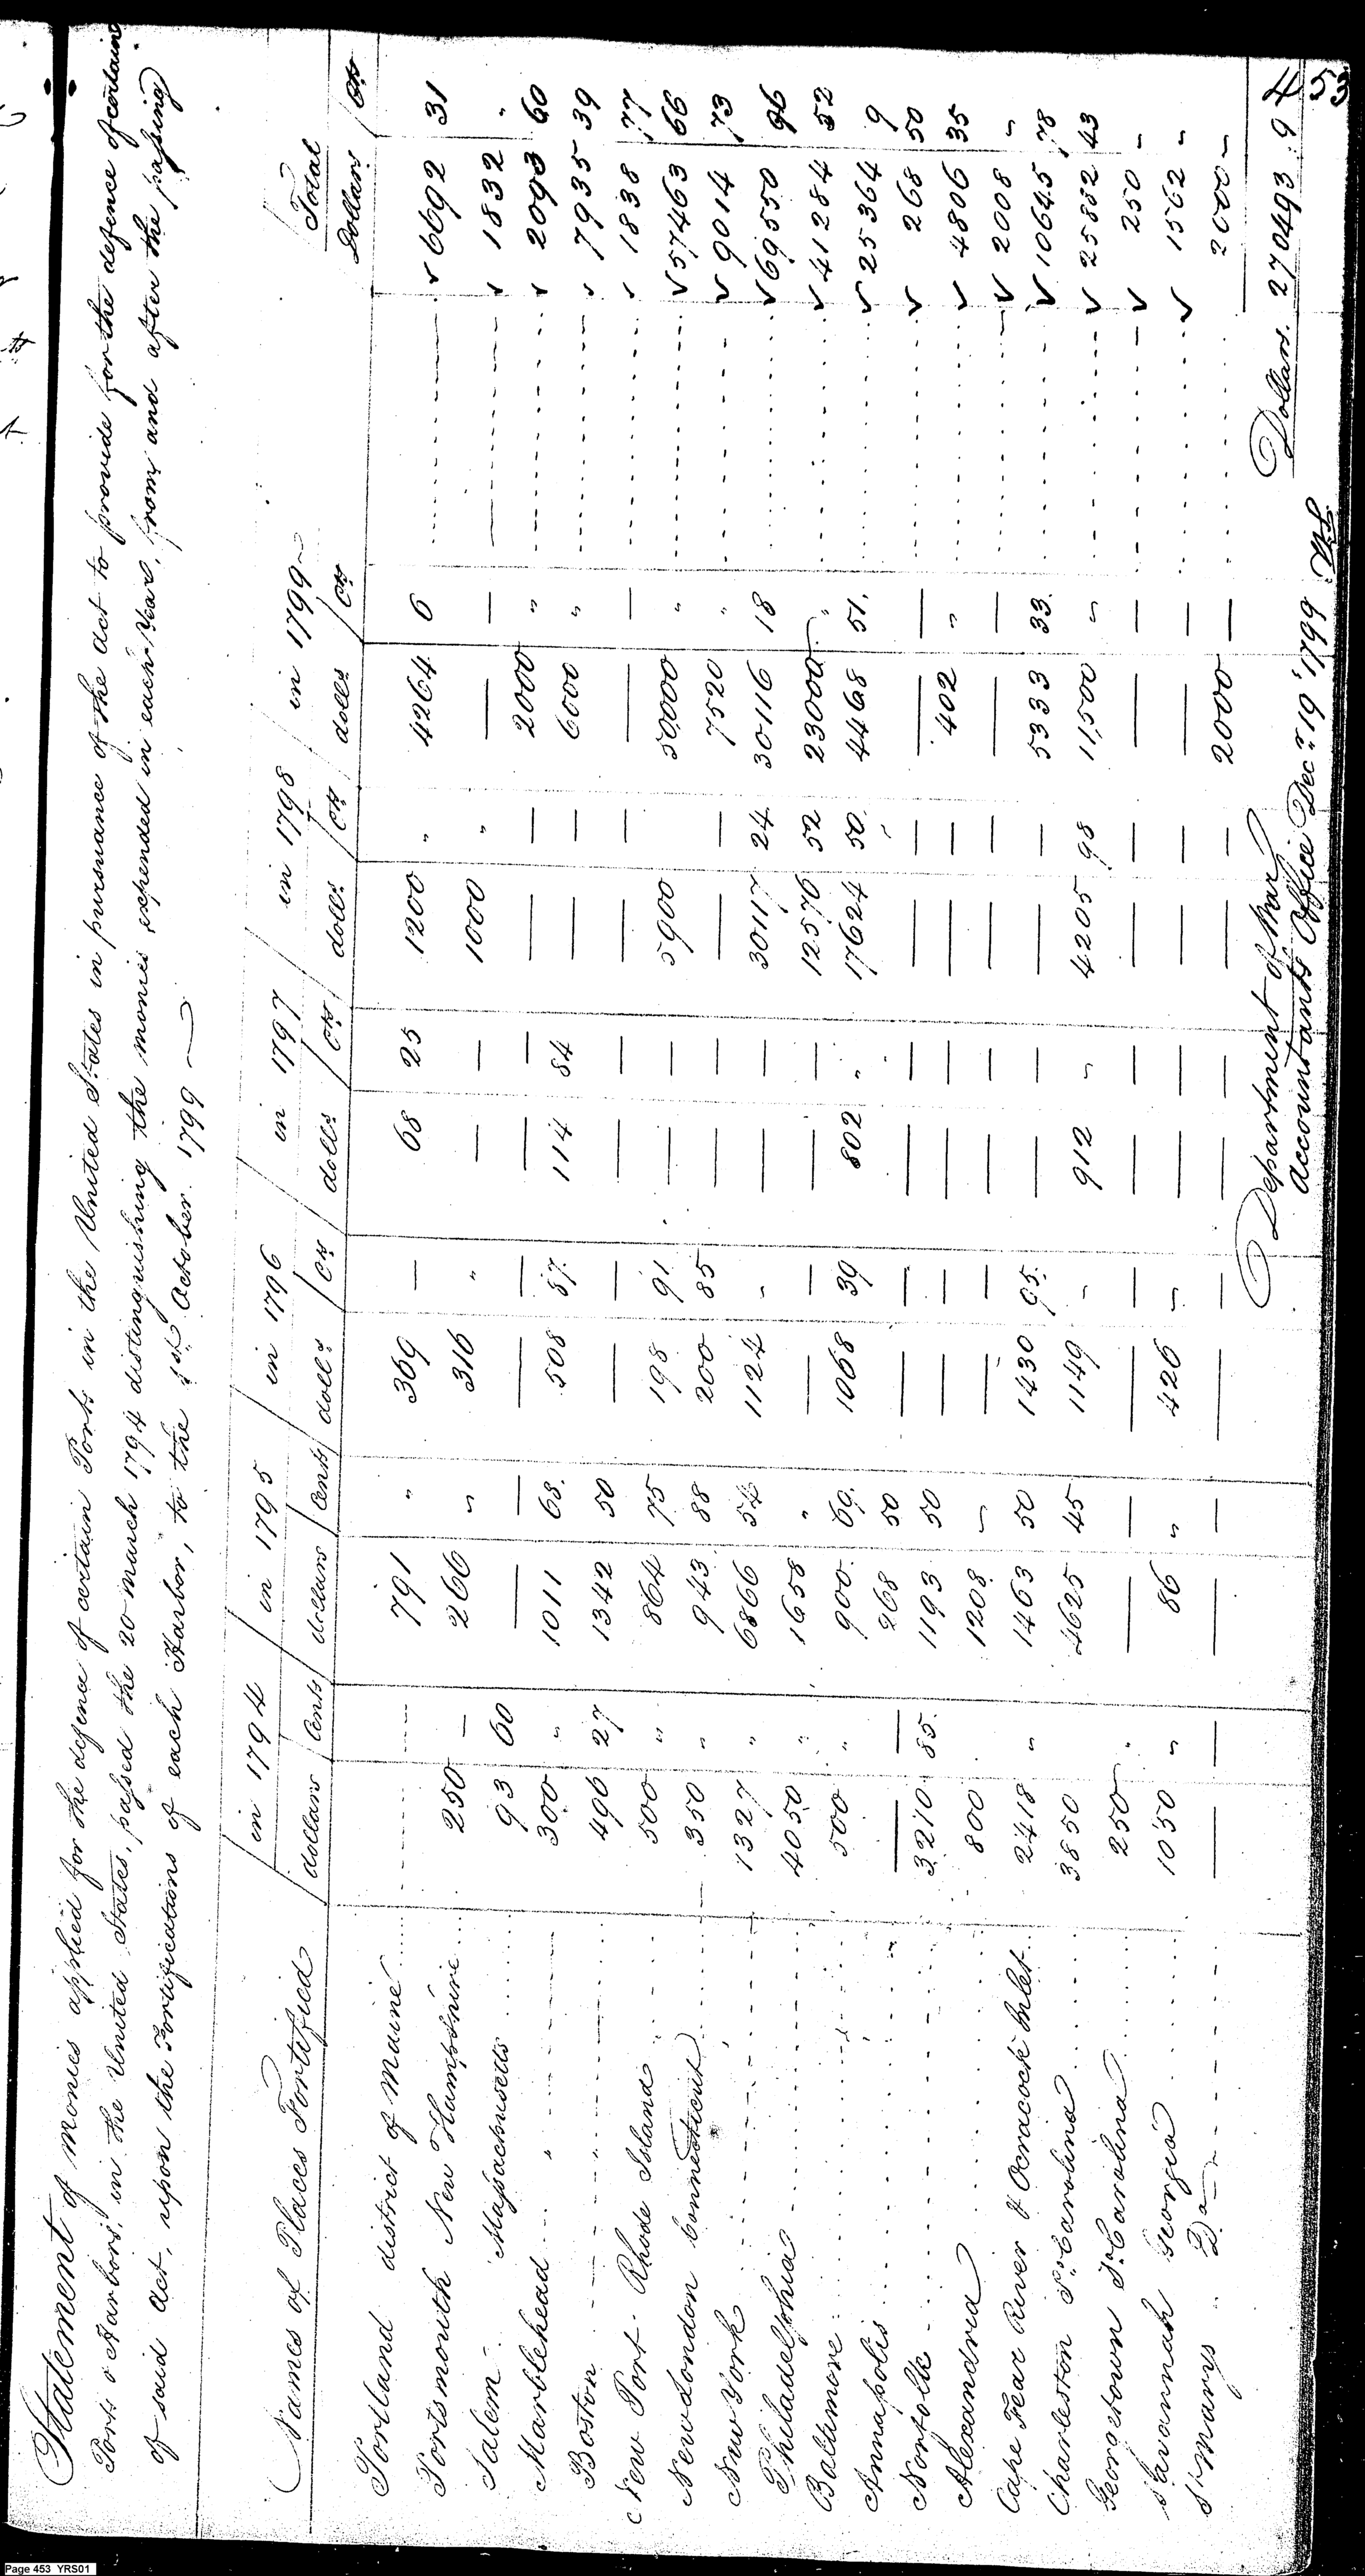 Statement of monies applied for the defence of certain Ports in the United States in pursuance of the Act to provide for the defence of certain
Ports & Harbors, in the United States, passed the 20 march 1794 distinguishing the monies expended in each Year, from, and after the passing
of said act, upon the Fortifications of each Harbor, to the 1st October 1799
Names of Places Fortified in 1794 in 1795 in 1796 in 1797 in 1798 in 1799 Total
dollars Cents dollars Cents dolls Cts dolls Cts dolls Cts dolls Cts Dollars Cts
Portland district of Maine 791 " 369 — 68 25 1200 " 4264 6 6692 31
Portsmouth New Hampshire 250 — 266 " 316 " — — 1000 " — — 1832 "
Salem Massachusetts 93 60 — — — — — — — — 2000 " 2093 60
Marblehead " 300 " 1011 68 508 87 114 84 — — 6000 " 7935 39
Boston " 496 27 1342 50 — — — — — — — — 1838 77
New Port Rhode Island 500 " 864 75 198 91 — — 5900 50,000 " 57463 66
New London Connecticut 350 " 943 88 200 85 — — — — 7520 " 9014 73
New York 1327 " 6866 54 1124 " — — 30117 24 30116 18 69550 96
Philadelphia 4050 " 1658 " — — — 12576 52 23000 " 41284 52
Baltimore 500 " 900 69 1068 39 802 " 17624 50 4468 51 25364 9
Annapolis — — 268 50 — — — — — — — — 268 50
Norfolk 3210 85 1193 50 — — — — — — 402 " 4806 35
Alexandria 800 1208 " — — — — — — — — 2008 "
Cape Fear River & Ocracock Inlet 2418 " 1463 50 1430 95 — — — — 5333 33 10645 78
Charleston So Carolina 3850 4625 45 1149 " 912 " 4205 98 11,500 " 25882 43
Georgetown So Carolina 250 " — — — — — — — — — — 250 "
Savannah Georgia 1050 " 86 " 426 " — — — — — — 1562 "
St Marys Do — — — — — — — — — — 2000 — 2000 "
Dollars. 270493 .9
Department of War
Accountants Office Decr 19 1799
453
Page 453 YRS01